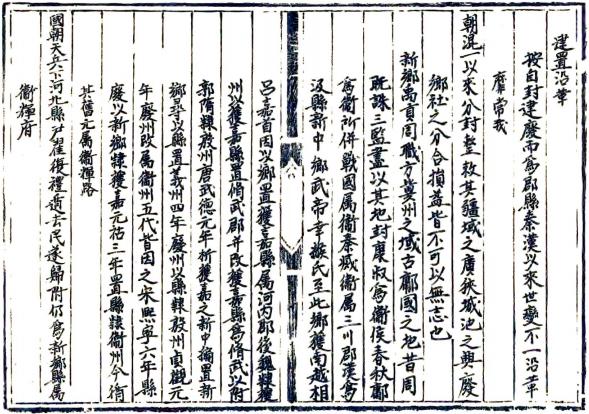 建置沿革
按自封建廢而爲郡縣秦漢以來世變不一沿革
靡常我
朝混一以來分封整敕其疆域之廣狹城池之興廢
鄉社之分合損益皆不可以無志也
新鄉禹貢周職方冀州之域古鄘國之地昔周
既誅三監盡以其地封康叔爲衛侯春秋鄘
爲衛所併戰國属衛秦滅衛属三川郡漢爲
汲縣新中鄉武帝幸緱氏至此鄉獲南越相
吕嘉首因以鄉置獲嘉縣属河内郡後魏
州以獲嘉縣置脩武郡并改獲嘉縣爲脩武以附
郭隋隸殷州唐武德元年析獲嘉之新中播置新
鄉尋以縣置義州四年廢州以縣隸殷州貞觀元
年廢州改属衛州五代皆因之宋熙寧六年縣
廢以新鄉隸獲嘉元祐三年置縣隸衛州今循
其舊元属衛輝路
國朝天兵下河北縣尹翟復禮遁去民遂歸附仍爲新鄉縣属
衛輝府